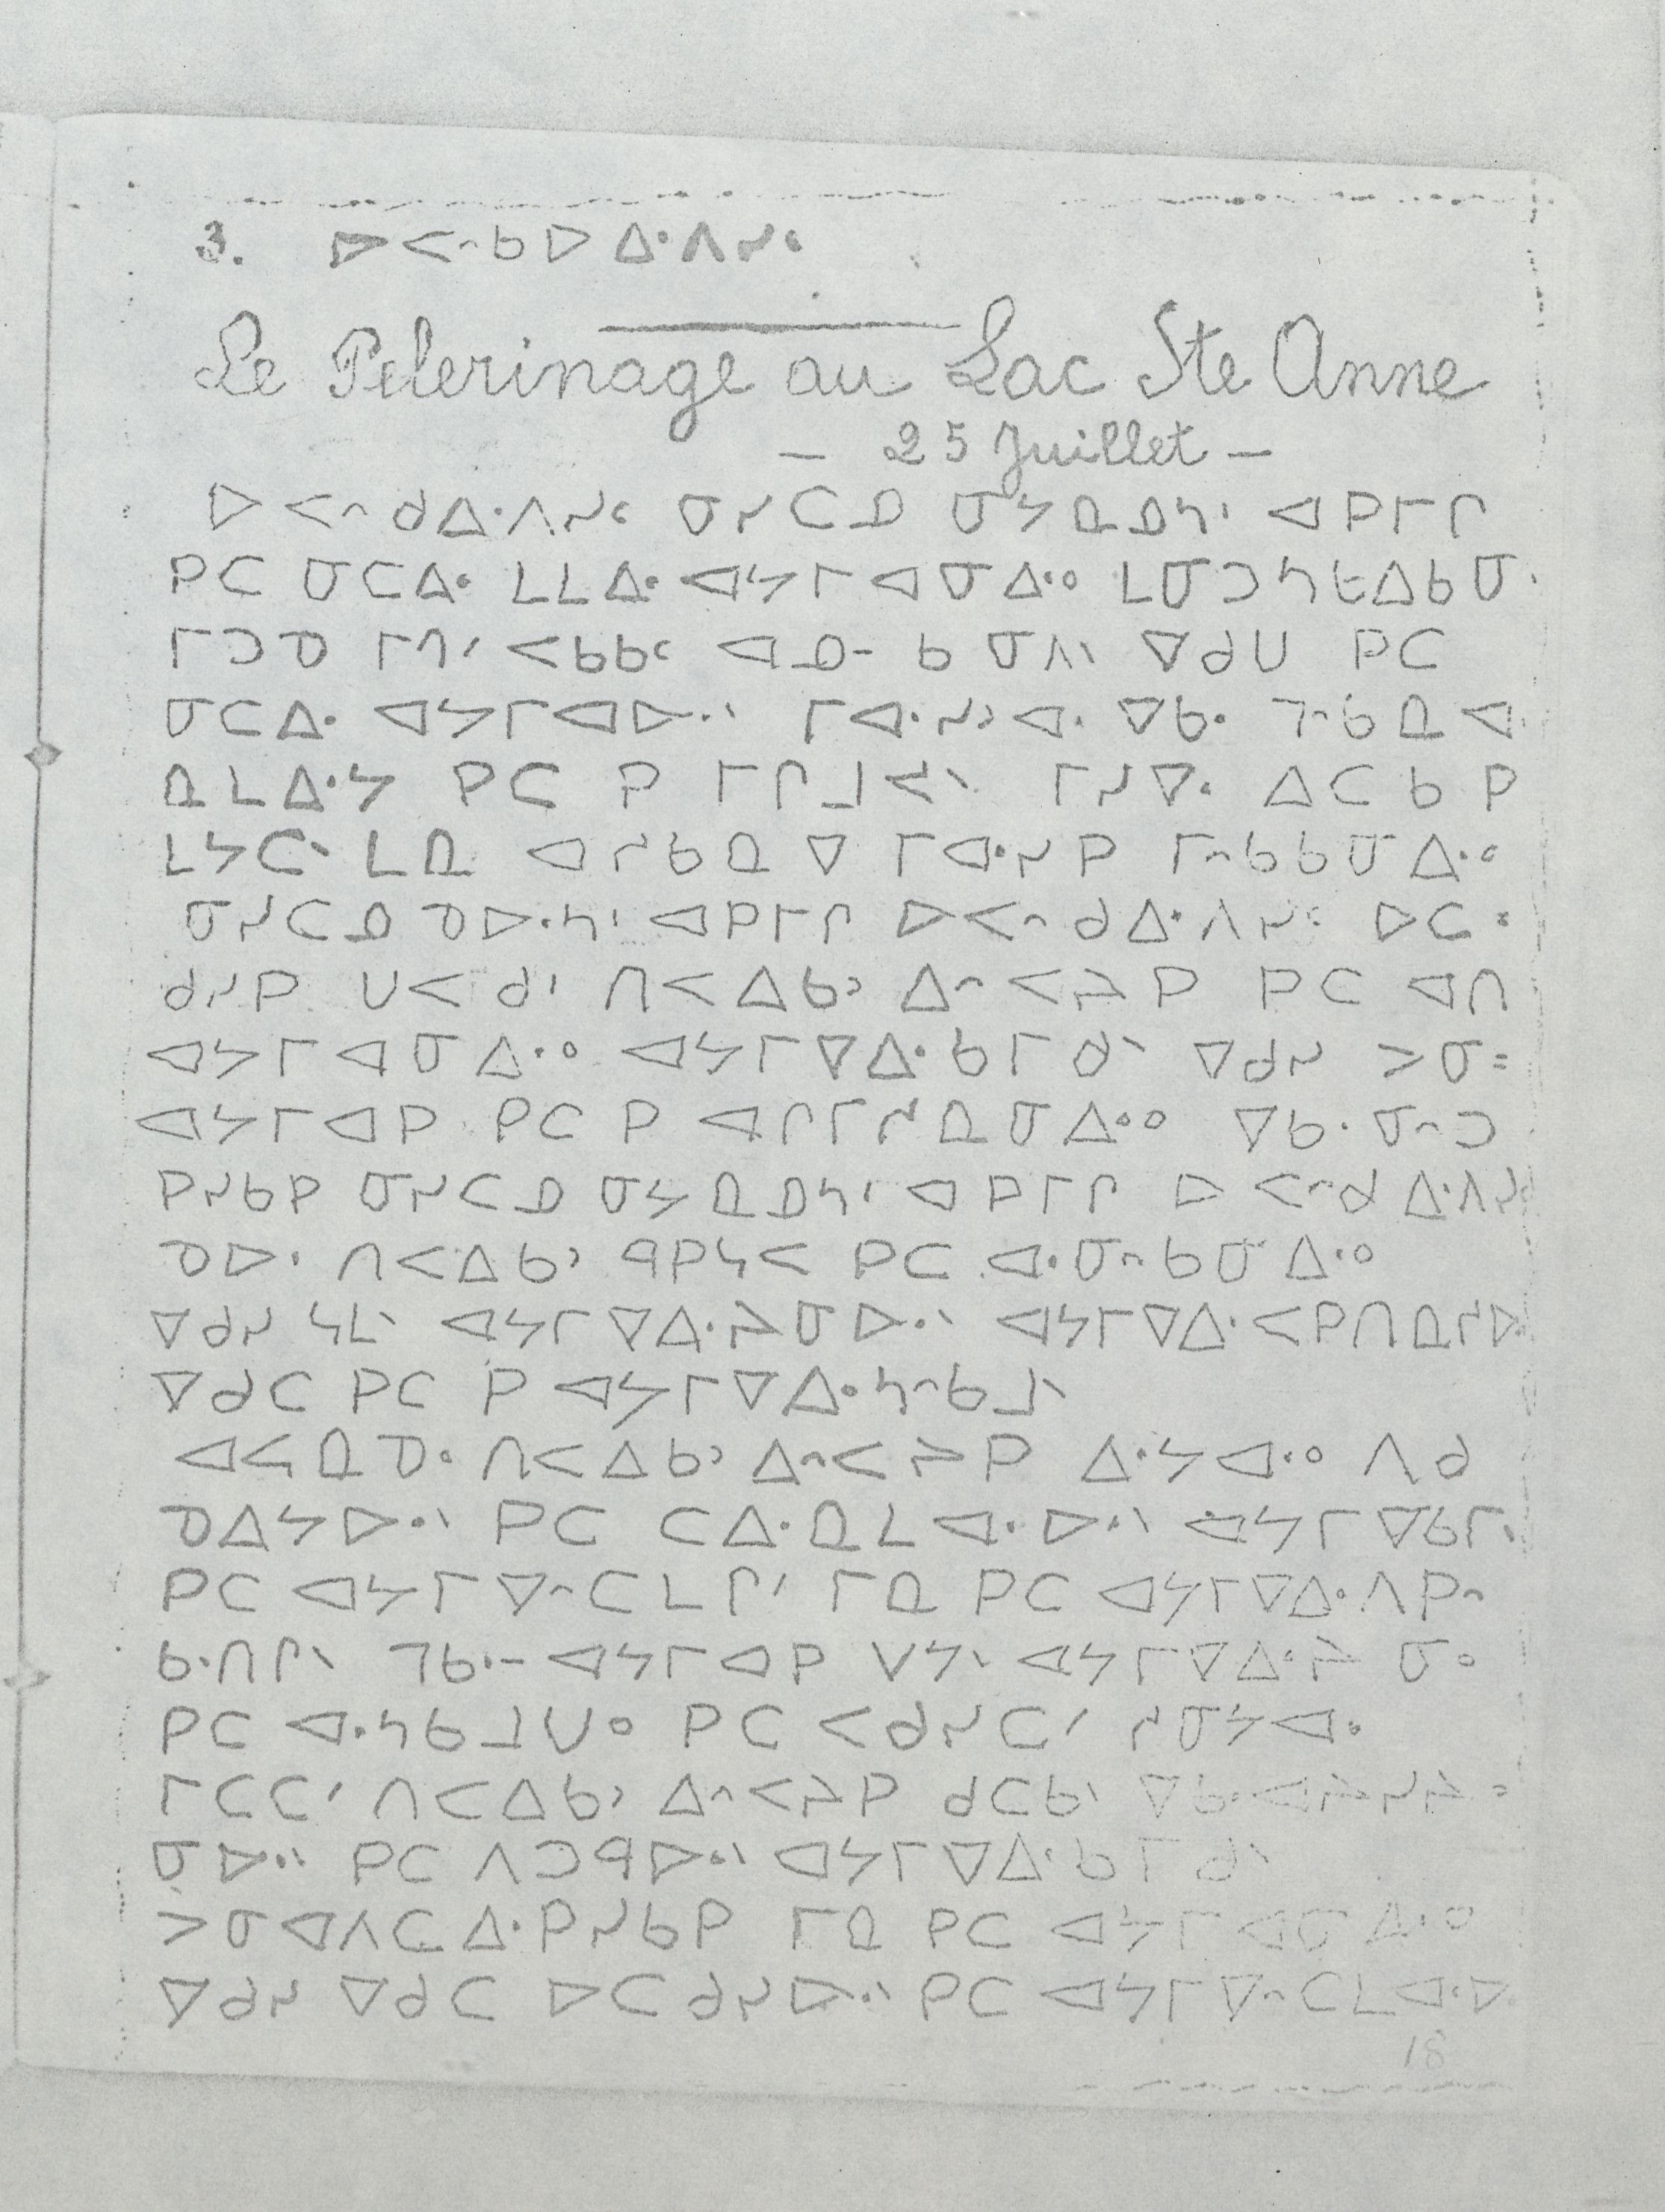 3. ᐅᐸᐢᑲᐅᐃᐧᐱᓯᒼ
Le Pelerinage au Lac Ste Anne
— 25 Juillet —
ᐅᐸᐢᑯᐃᐧᐱᓯᒼ ᓂᓯᑕᓄ ᓂᔭᓇᓄᓴᑊ ᐊᑭᒥᒋ
ᑭᑕ ᓂᑕᐃᐧ ᒪᒪᐃᐧ ᐊᔭᒥᐊᓂᐃᐧᐤ
ᒥᑐᓀ ᒥᐢᑎᐦ ᐊᓄᐨ ᑲ ᓂᐱᐠ ᐁᑯᑌ ᑭᑕ
ᓂᑕᐃᐧ ᐊᔭᒥᐊᐅᐧᐠ ᒥᐊᐧᓯᐣ ᐁᑲᐧ
ᓇᒪᐃᐧᔭ ᑭᑕ ᑭ ᒥᒋᒧᐸᔨᐠ ᒥᓯᐁᐧ ᐃᑕ ᑲ ᑭ
ᒪᔭᑕᐠ ᒪᓇ ᐊᓯᑲᓇ ᐁ ᒥᐊᐧᓯᑭ ᒥᐢᑲᑲᓂᐃᐧᐤ
ᓂᓯᑕᓄ ᓀᐅᐧᓴᑊ ᐊᑭᒥᒋ ᐅᐸᐢᑯᐃᐧᐱᓯᒼ ᐅᑕ
ᑯᓯᑭ ᑌᐸᑯᑊ ᑎᐸᐃᑲᐣ ᐃᐢᐸᔨᑭ ᑭᑕ ᐊᑎ
ᐊᔭᒥᐊᓂᐃᐧᐤ ᐊᔭᒥᐁᐃᐧᑲᒥᑯᐠ ᐁᑯᓯ ᐳᓂ=
ᐊᔭᒥᐊᑭ ᑭᑕ ᑭ ᐊᒋᒥᓯᓇᓂᐃᐧᐤ ᐁᑲᐧ ᓂᐢᑐ
ᑭᓯᑲᑭ ᓂᓯᑕᓄ ᓂᔭᓇᓄᓴᑊ ᐊᑭᒥᒋ ᐅᐸᐢᑯᐃᐧᐱᓯᒼ
ᓀᐅᐧ ᑎᐸᐃᑲᐣ ᑫᑭᓴᐸ ᑭᑕ ᐊᐧᓂᐢᑲᓂᐃᐧᐤ
ᐁᑯᓯ ᓴᒪᐠ ᐊᔭᒥᐁᐃᐧᔨᓂᐅᐧᐠ ᐊᔭᒥᐁᐃᐧᐸᑭᑎᓇᓱᐅᐧ
ᐁᑯᑕ ᑭᑕ ᑭ ᐊᔭᒥᐁᐃᐧᓴᐢᑲᒧᐠ
ᐊᐚᓇ ᓀᐧ ᑎᐸᐃᑲᐣ ᐃᐢᐸᔨᑭ ᐃᐧᔭᐊᐧᐤ ᐱᑯ
ᓀᐃᔭᐅᐧᐠ ᑭᑕ ᑕᐃᐧᓇᒪᐊᐧᐅᐧᐠ ᐊᔭᒥᐁᑲᒥᐠ
ᑭᑕ ᐊᔭᒥᐁᐢᑕᒪᒋᐟ ᒥᓇ ᑭᑕ ᐊᔭᒥᐁᐃᐧᐱᑭᐢ
ᑲᐧᑎᒋᐠ ᒣᑲᐧᐨ ᐊᔭᒥᐊᑭ ᐯᔭᐠ ᐊᔭᒥᐁᐃᐧᔨᓂᐤ
ᑭᑕ ᐊᐧᓴᑲᒧᑌᐤ ᑭᑕ ᐸᑯᓯᑕᐟ ᓯᓂᔭᐊᐧ
ᒥᑕᑕᐟ ᑎᐸᐃᑲᐣ ᐃᐢᐸᔨᑭ ᑯᑕᑲᐠ
ᓂᐅᐧᐠ ᑭᑕ ᐱᑐᑫᐅᐧᐠ ᐊᔭᒥᐁᐃᐧᑲᒥᑯᐠ
ᐳᓂᐊᐱᑕᐃᐧᑭᓯᑲᑭ ᒥᓇ ᑭᑕ ᐊᔭᒥᐊᓂᐃᐧᐤ
ᐁᑯᓯ ᐁᑯᑕ ᐅᑕᑯᓯᐅᐧᐠ ᑭᑕ ᐊᔭᒥᐁᐢᑕᒪᐊᐧᐅᐧ
18